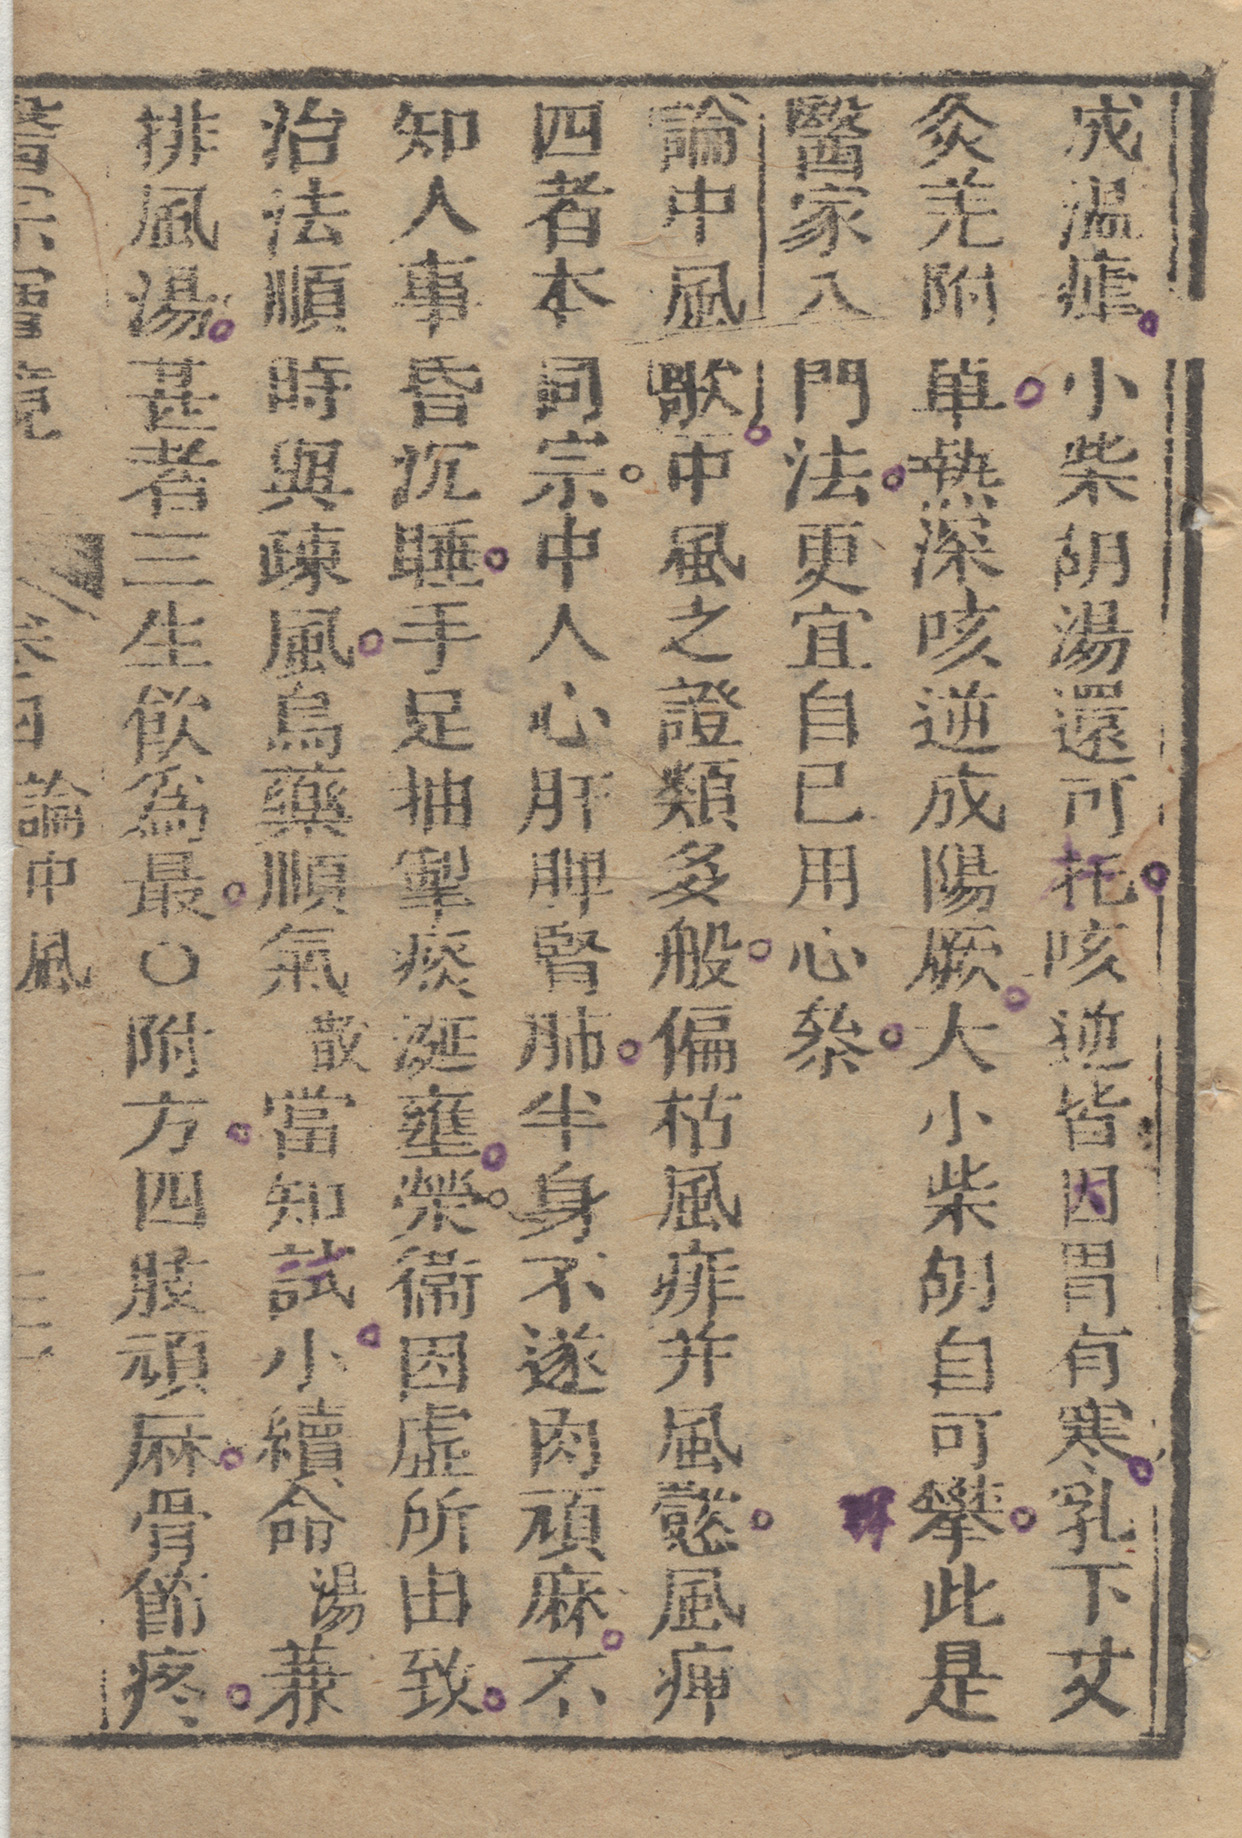 成溫瘧小柴胡湯還可托咳逆皆因胃有寒乳下艾
灸羌附單熱深咳逆成陽厥大小柴胡自可攀此是
醫家入門法更宜自己用心叅
論中風歌中風之證類多般偏枯風痱并風懿風痺
四者本同宗中人心肝脾腎肺半身不遂肉頑麻不
知人事昏沉睡手足抽掣痰涎壅榮衞因虛所由致
治法順時與疎風烏藥順氣散當知試小續命湯兼
排風湯甚者三生飮為最〇附方四肢頑麻骨節疼
論中風